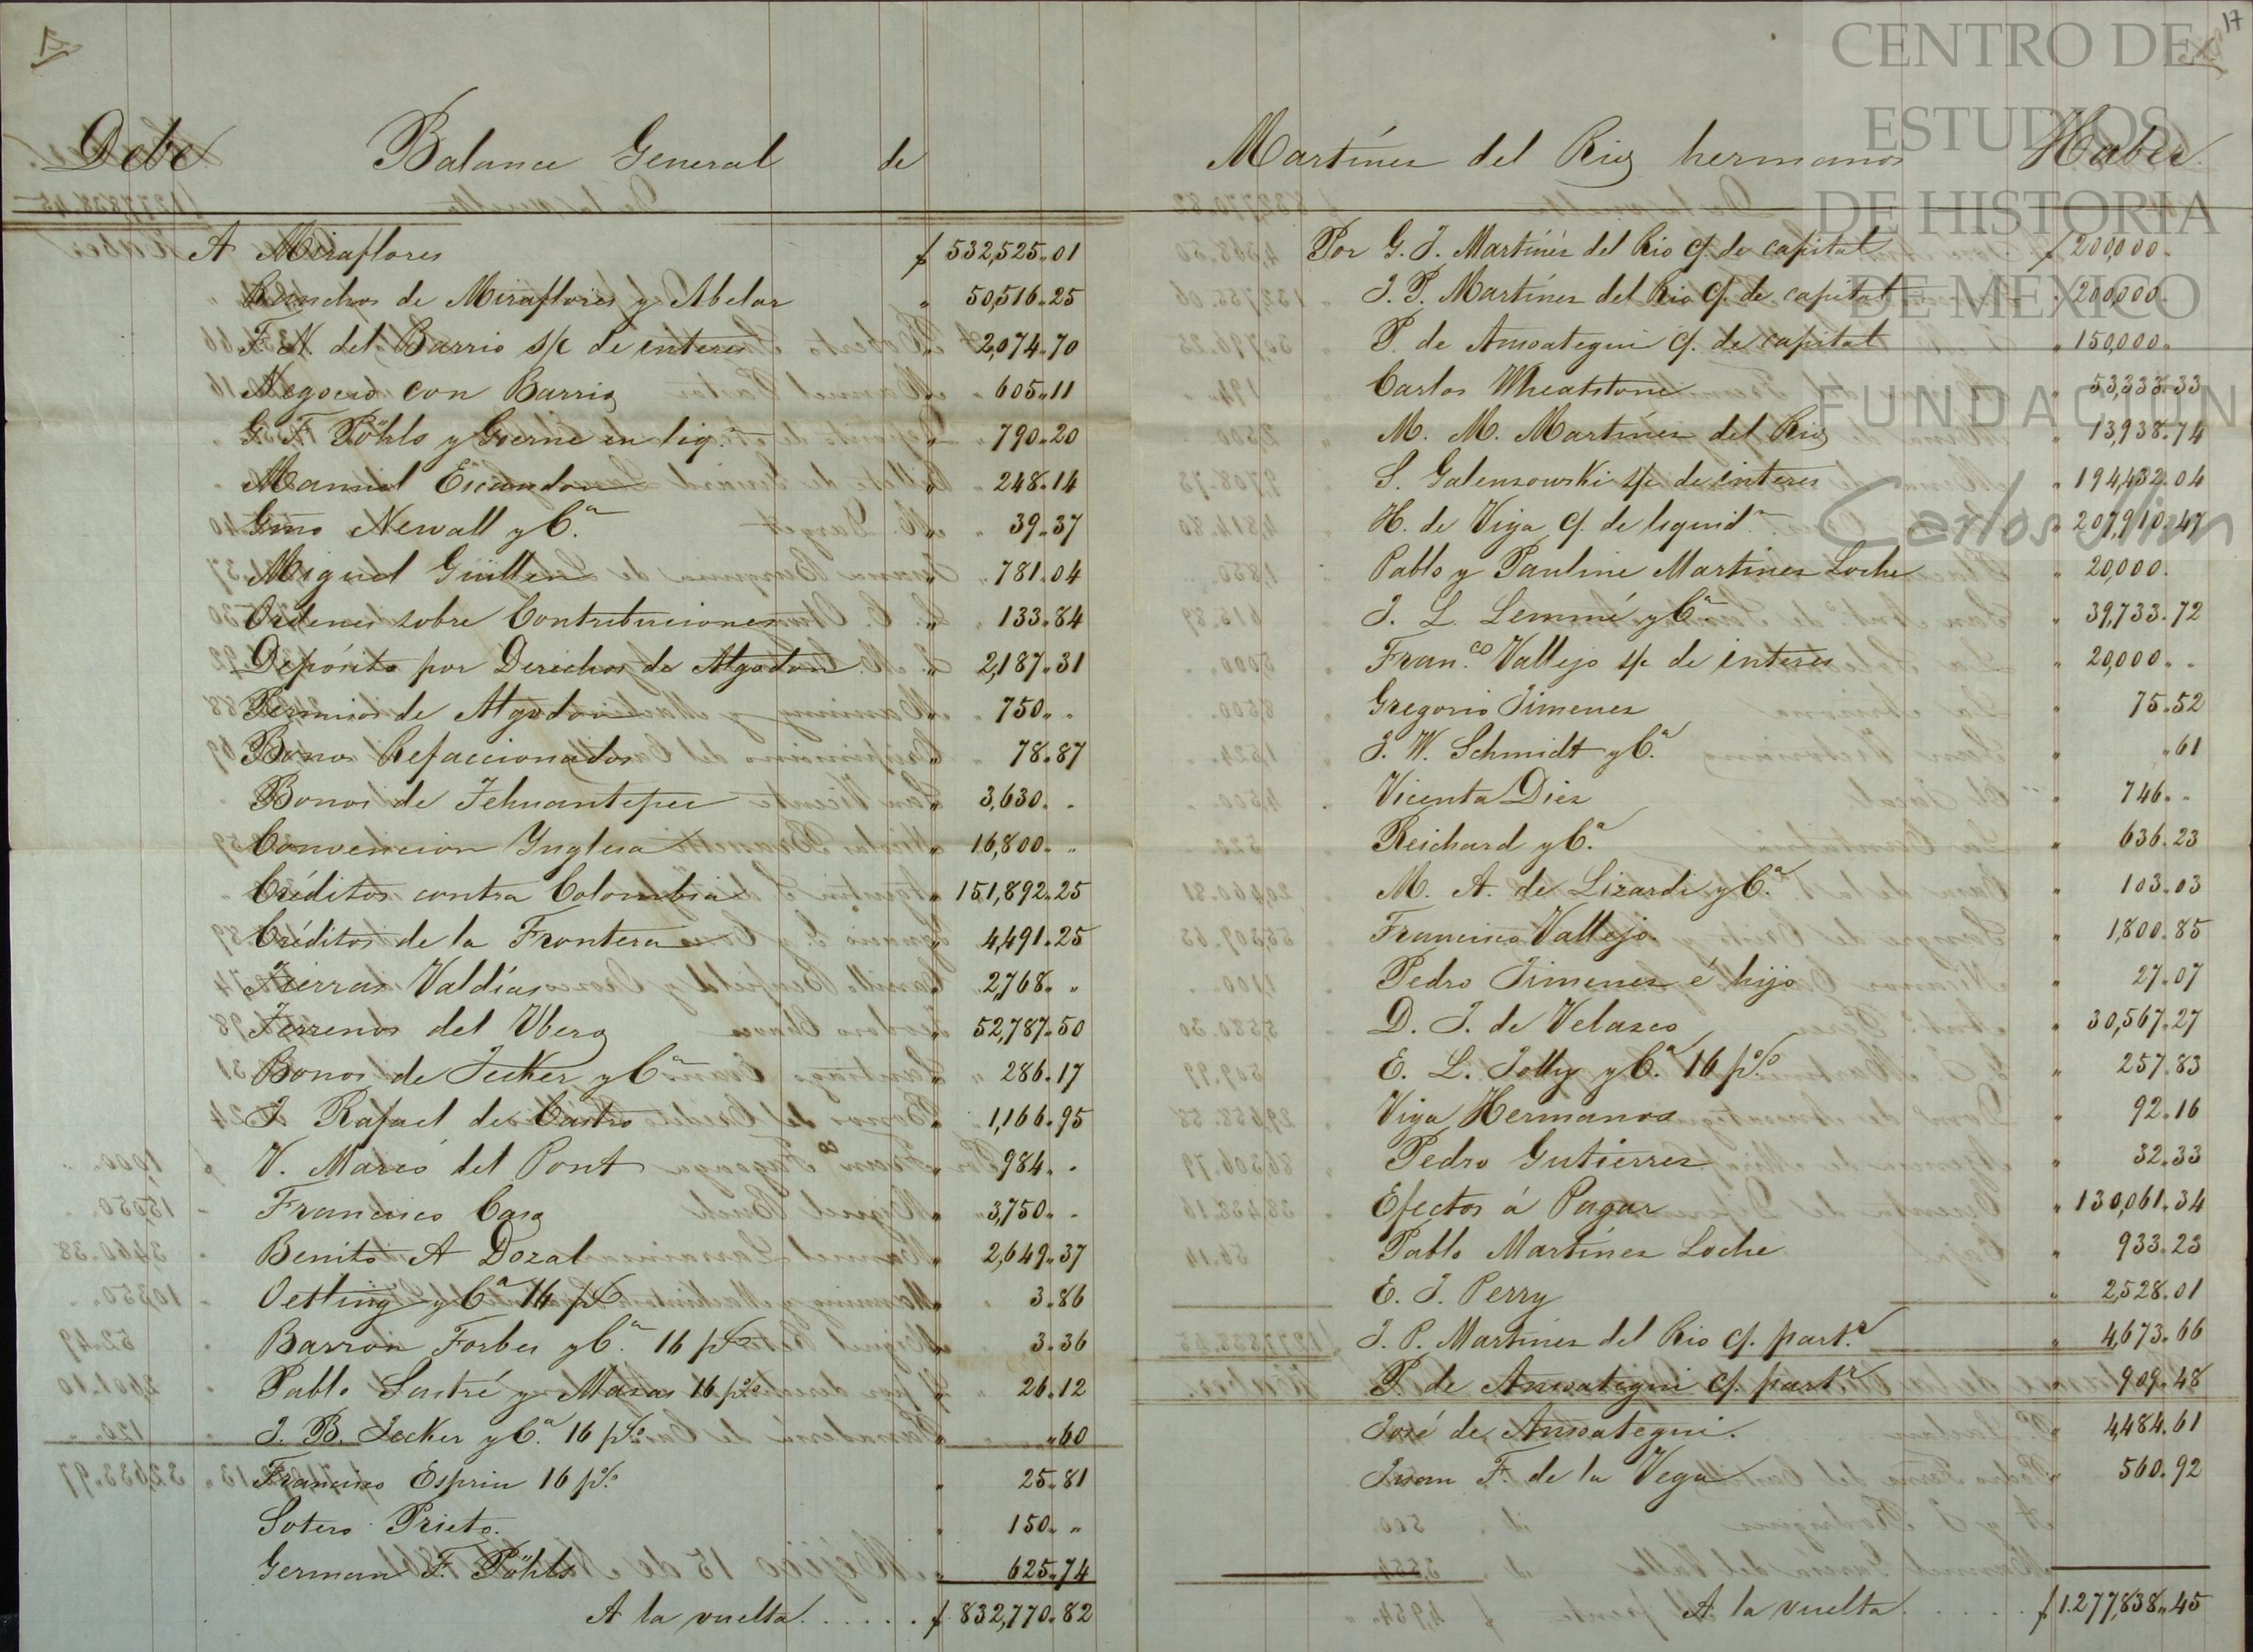 17
Debe Balance General de
A Miraflores $ 532,525.01
Ranchos de Miraflores y Abelar " 50,516.25
F. N. del Barrio s/c de interes " 2,074.70
Negocio con Barrio " 605.11
G. F. Pöhls y Goerne en liq.n " 790.20
Manuel Escandon " 248.14
Gmo Newall y Ca. " 39.37
Miguel Güillen " 781.04
Ordenes sobre Contribuciones " 133.84
Depósito por Derechos de Algodon " 2,187.31
Permisos de Algodon " 750.
Bonos Refaccionados " 78.87
Bonos de Tehuantepec " 3,630.
Convencion Ynglesa " 16,800.
Créditos contra Colombia " 151,892.25
Créditos de la Frontera " 4,491.25
Tierras Valdías " 2,768.
Terrenos del Ubero " 52,787.50
Bonos de Jecker y Ca " 286.17
J. Rafael de Castro " 1,166.95
V. Marcó del Pont " 984.
Francisco Caso " 3,750.
Benito A Dozal " 2,649.37
Oetling y Ca 14 p% " 3.86
Barron Forbes y Ca. 16 p% " 3.36
Pablo Sastré y Mazas 16 p% " 26.12
J. B. Jecker y Ca. 16 p% " "60
Francisco Espriu 16 p% " 25.81
Sotero Prieto. " 150.
German F. Pöhls " 625.74
A la vuelta. . . . . . $ 832,770.82
Martínez del Rio hermanos Haber.
Por G. J. Martínez del Rio c/. de capital $ 200,000.
J. P. Martínez del Rio c/. de capital " 200,000.
P. de Ansoategui c/. de capital " 150,000.
Carlos Wheatstone " 53,333.33
M. M. Martínez del Rio " 13,938.74
S. Galenzowski s/c de interes " 194,432.04
H. de Viya c/. de liquid.n " 207,910.47
Pablo y Pauline Martinez Loche " 20,000.
J. L. Lemmé y Ca. " 39,733.72
Fran.co Vallejo s/c de interes " 20,000.
Gregorio Jimenez " 75.52
J. W. Schmidt y Ca. " "61
Vicenta Diez " 746.
Reichard y Ca. " 636.23
M. A. de Lizardi y Ca. " 103.03
Francisco Vallejo. " 1,800.85
Pedro Jimenez é hijo " 27.07
D. J. de Velasco " 30,567.27
E. L. Jolly y Ca. 16 p% " 257.83
Viya Hermanos " 92.16
Pedro Gutierrez " 32.33
Efectos á Pagar " 130,061.34
Pablo Martínez Loche " 933.23
E. J. Perry " 2,528.01
J. P. Martínez del Rio c/. part.r " 4,673.66
P. de Ansoategui c/. part.r " 909.48
José de Ansoategui. " 4,484.61
Juan F. de la Vega " 560.92
A la vuelta. . . . . $ 1.277,838.45
CENTRO DE
ESTUDIOS
DE HISTORIA
DE MÉXICO
FUNDACIÓN
Carlos Slim